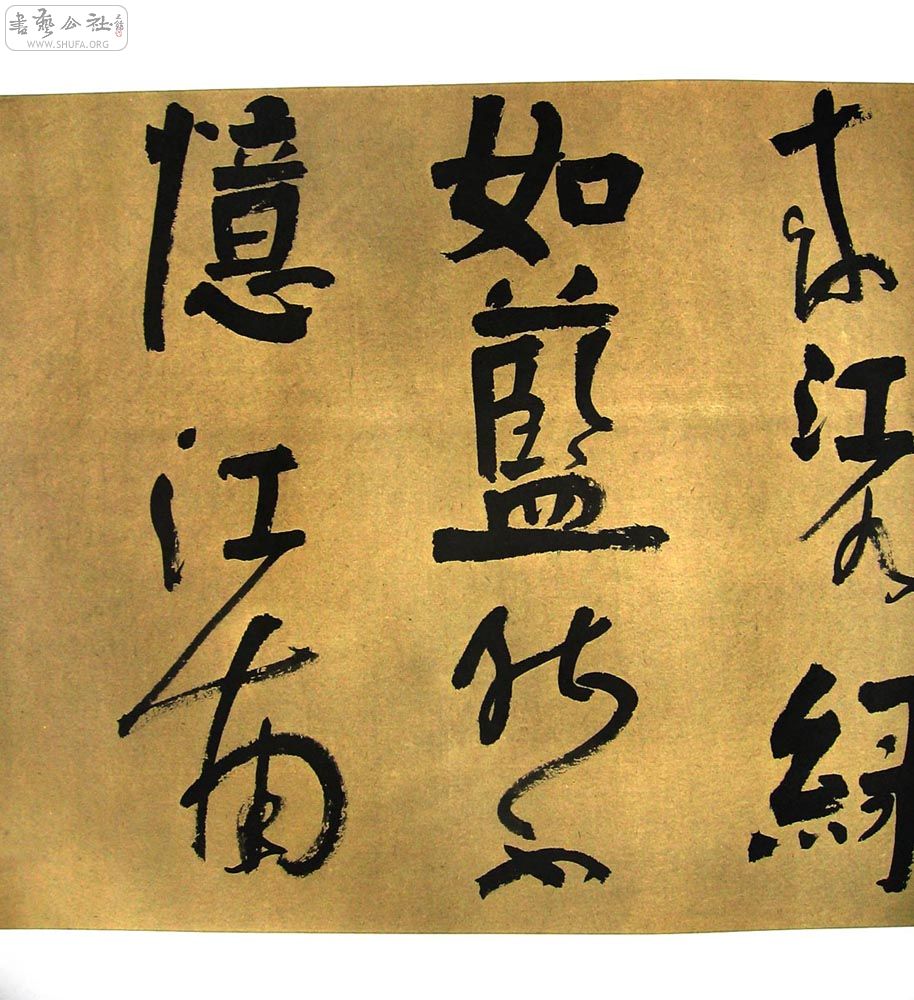 書藝公社
WWW.SHUFA.ORG
来江水緑
如藍能不
憶江南